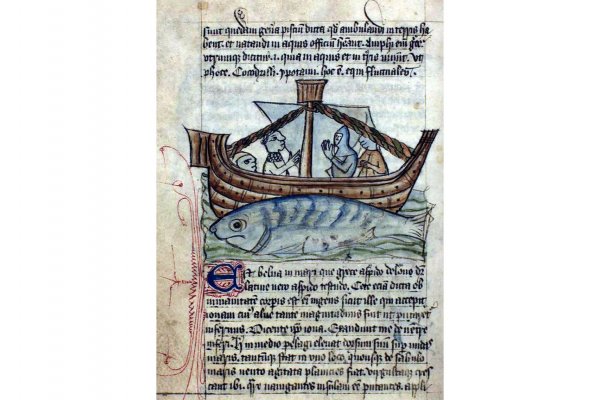 sunt quedam gen̄a pisciū dicta qd̄ ambulandi in terris ha
bent. et natandi in aquis officiū hēant. Amphi em̄ grece
utrumque dicitur .i. quia in aquis et in t̄ris viuūt. ut
phoce. Cocodrilli. ypotami. hoc ē. equi fluctuales.
Est belua in mari que grece aspido delone dr̄
latine uero aspido testudo. Cete eciā dicta ob
inmanitatē corꝑis est em̄ ingens sicut ille qui excepit
ionam cuiꝰ aluꝰ tante magnitudinis fuit ut putaret̄
infernus. Dicente ip̄o iona. Exaudiuit me de uentre
inferi. in medio pelagi eleuat dorsum suū sup̄ undas
maris. tantūque stat in uno loco. quousque de sabulo
maris uento agitata planicies fiat. uirgultaque cres
cant ibi. nauigantes insulam ēē putantes. appli